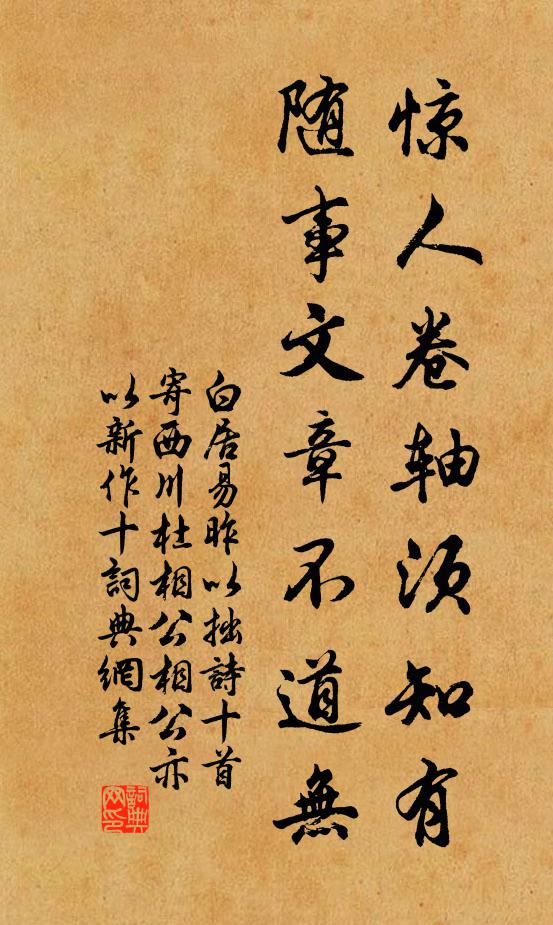 惊人卷轴须知有
随事文章不道無
白居易昨以拙詩十首
寄西川杜相公相公亦
以新作十詞典網集
詞典网印